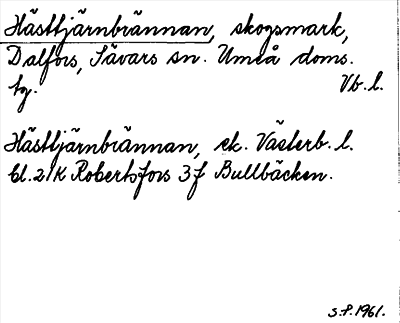 Hästtjärnbrännan, skogsmark,
Dalfors, Sävars sn. Umeå doms.
tg. Vb. l.
Hästtjärnbrännan, ek. Västerb. l.
bl. 21K Robertsfors 3f Bullbäcken.
S.P. 1961.